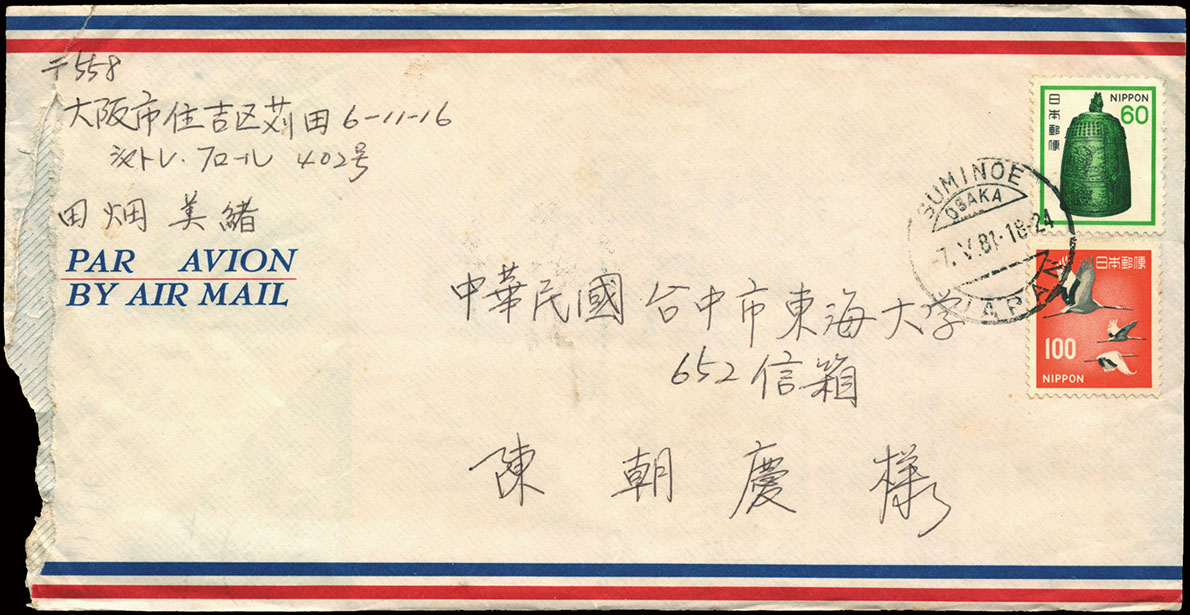 〒558
大阪市住吉区苅田6-11-16
シャトレ・フロール 402号
田畑 美緒
PAR AVION
BY AIR MAIL
日本郵便
NIPPON
60
SUMINOE
OSAKA
-7.V.81.18-24
JAPAN
日本郵便
100
NIPPON
中華民國 台中市東海大学
652信箱
陳 朝 慶 様